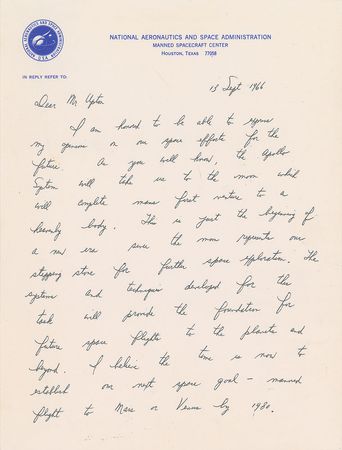 NATIONAL AERONAUTICS AND SPACE ADMINISTRATION
MANNED SPACECRAFT CENTER
HOUSTON, TEXAS 77058
IN REPLY REFER TO:
13 Sept 1966
Dear Mr. Upton
I am honored to be able to express
my opinions on our space efforts for the
future. As you well know, the Apollo
System will take us to the moon which
will complete mans first venture to a
heavenly body. This is just the beginning of
a new era since the moon represents our
stepping stone for further space exploration. The
systems and techniques developed for this
task will provide the foundation for
future space flights to the planets and
beyond. I believe the time is now to
establish our next space goal - manned
flight to Mars or Venus by 1980.